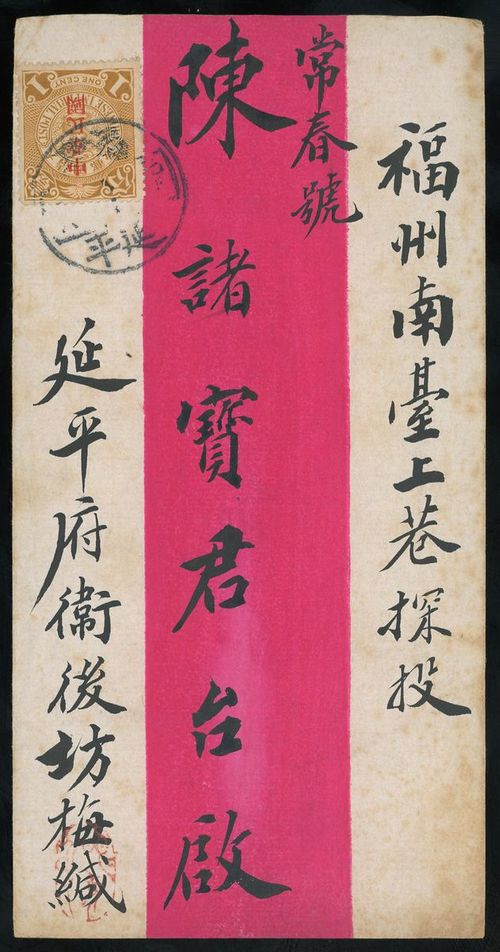 福州南臺上巷探投
常春號
陳諸寶君台啟
延平府衞後坊梅緘
1 ONE CENT 1
中華民國
延平